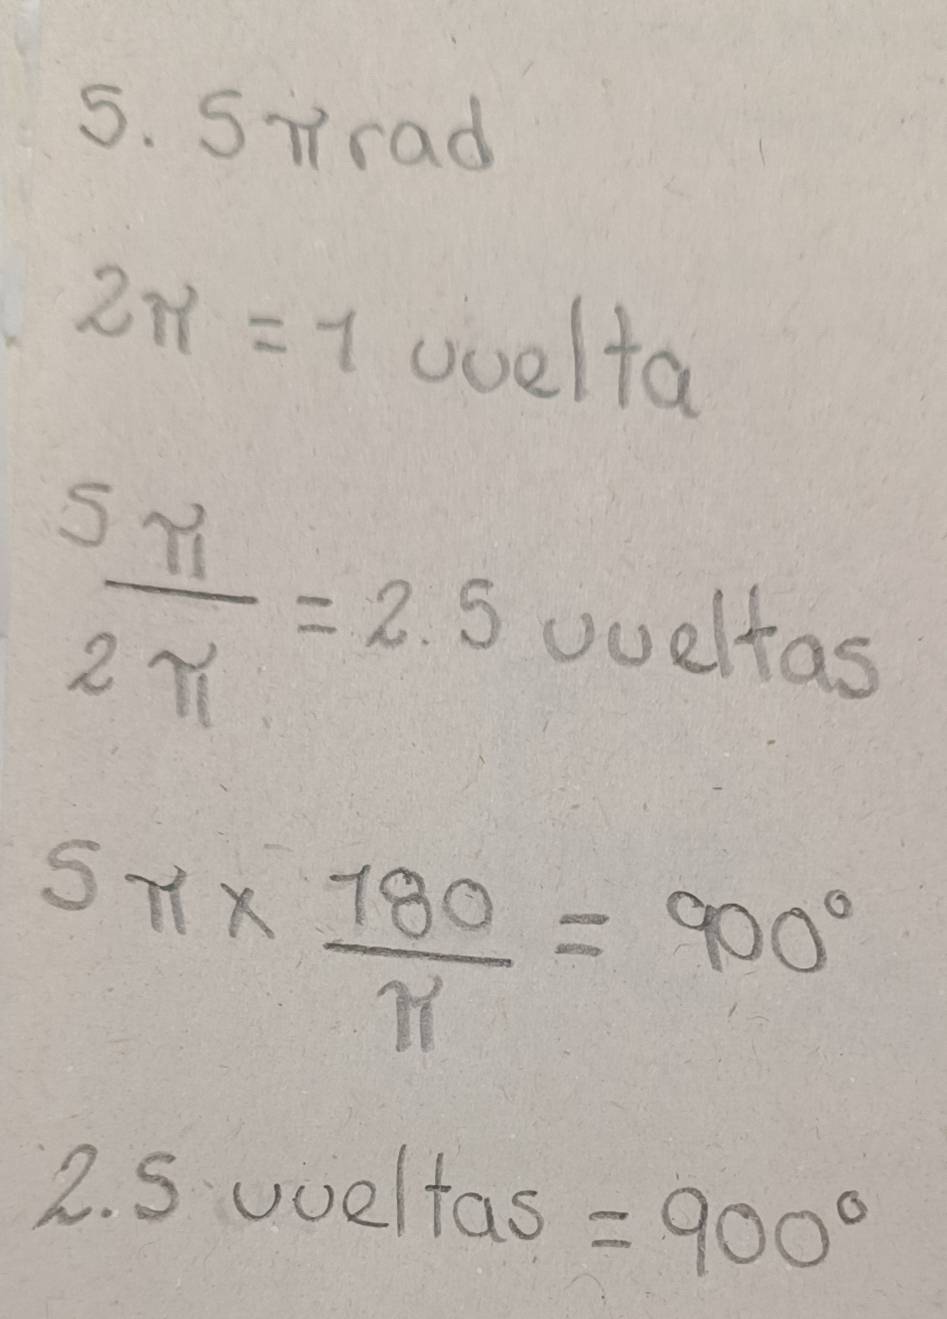 5. 5π rad
2π = 1 vuelta
5π/2π = 2.5 vueltas
5π x 180/π = 900°
2.5 vueltas = 900°